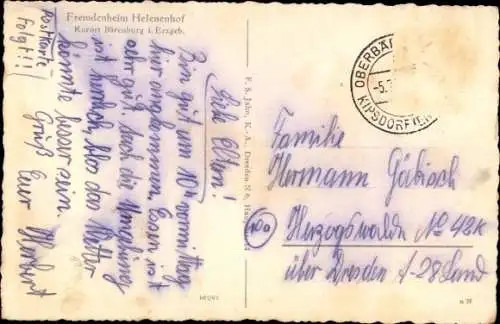 Fremdenheim Helenenhof
Kurort Bärenburg i. Erzgeb.
Postkarte
folgt!!
Liebe Eltern!
Bin gut um 10 h vormittag
hier angekommen. Essen ist
sehr gut. Auch die Umgebung
ist herrlich, blos das Wetter
könnte besser sein.
Gruß
Euer Herbert
F. S. Jahn, K.-A., Dresden N 6,
OBERBÄ
-5.
KIPSDORF
Familie
Hermann Gäbisch
Herzogswalde No 42k
über Dresden A-28 Land